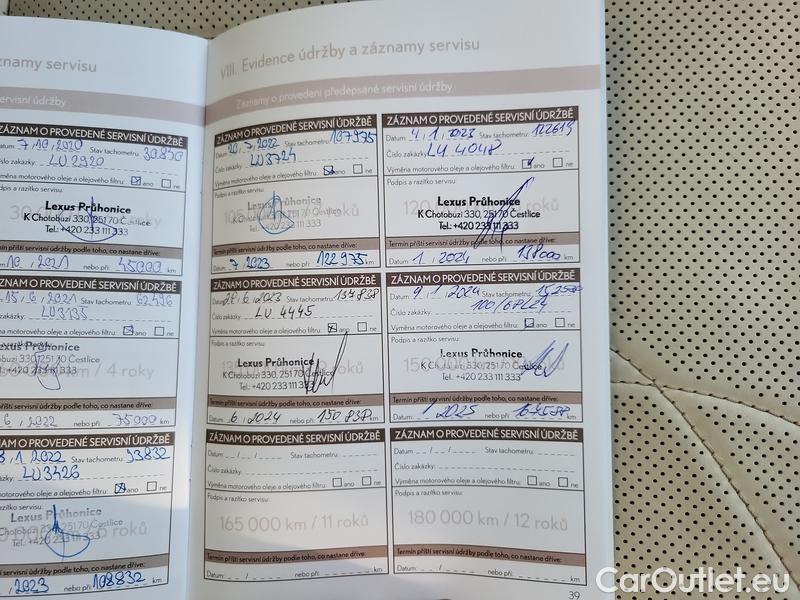 znamy servisu
ervisní údržby
ZÁZNAM O PROVEDENÉ SERVISNÍ ÚDRŽBĚ
7, 10, 2020 Stav tachometru: 30850
LU2920
Výměna motorového oleje a olejového filtru: ano ne
Podpis a razítko servisu:
Lexus Průhonice
K Chotobuzi 330, 251 70 Čestlice
Tel.: +420 233 111 333
Termín příští servisní údržby podle toho, co nastane dříve:
10, 2021 nebo při: 45000 km
ZÁZNAM O PROVEDENÉ SERVISNÍ ÚDRŽBĚ
15, 6, 2021 Stav tachometru: 62496
LU3135
motorového oleje a olejového filtru: ano ne
exus Průhonice
obuzi 330, 251 70 Čestlice
/ 4 roky
příští servisní údržby podle toho, co nastane dříve:
6, 2022 nebo při: 75000 km
NAM O PROVEDENÉ SERVISNÍ ÚDRŽBĚ
1 2022 Stav tachometru: 93832
LU3426
motorového oleje a olejového filtru: ano ne
a razítko servisu:
Lexus Průhonice
330, 251 70 Čestlice
Tel.: +420 233 111 333
roků
příští servisní údržby podle toho, co nastane dříve:
2023 nebo při: 108832 km
VIII. Evidence údržby a záznamy servisu
Záznamy o provedení předepsané servisní údržby
ZÁZNAM O PROVEDENÉ SERVISNÍ ÚDRŽBĚ
Datum: 20, 7, 2022 Stav tachometru: 107975
Číslo zakázky: LU3724
Výměna motorového oleje a olejového filtru: ano ne
Podpis a razítko servisu:
Lexus Průhonice
K Chotobuzi 330, 251 70 Čestlice
Tel.: +420 233 111 333
Termín příští servisní údržby podle toho, co nastane dříve:
Datum: 7, 2023 nebo při: 122975 km
ZÁZNAM O PROVEDENÉ SERVISNÍ ÚDRŽBĚ
Datum: 4, 1, 2023 Stav tachometru:
Číslo zakázky: LU 4048
Výměna motorového oleje a olejového filtru: ano ne
Podpis a razítko servisu:
Lexus Průhonice
K Chotobuzi 330, 251 70 Čestlice
Tel.: +420 233 111 333
Termín příští servisní údržby podle toho, co nastane dříve:
Datum: 1, 2024 nebo při: 138000 km
ZÁZNAM O PROVEDENÉ SERVISNÍ ÚDRŽBĚ
6, 2023 Stav tachometru: 134838
Číslo zakázky: LU 4445
Výměna motorového oleje a olejového filtru: ano ne
Podpis a razítko servisu:
Lexus Průhonice
K Chotobuzi 330, 251 70 Čestlice
Tel.: +420 233 111 333
Termín příští servisní údržby podle toho, co nastane dříve:
Datum: 6, 2024 nebo při: 150838 km
ZÁZNAM O PROVEDENÉ SERVISNÍ ÚDRŽBĚ
Datum: 9, 1, 2024 Stav tachometru:
Číslo zakázky:
Výměna motorového oleje a olejového filtru: ano ne
Podpis a razítko servisu:
Lexus Průhonice
330, 251 70 Čestlice
Tel.: +420 233 111 333
Termín příští servisní údržby podle toho, co nastane dříve:
Datum: 1 2025 nebo při: km
ZÁZNAM O PROVEDENÉ SERVISNÍ ÚDRŽBĚ
Datum: / / Stav tachometru:
Číslo zakázky:
Výměna motorového oleje a olejového filtru: ano ne
Podpis a razítko servisu:
165 000 km / 11 roků
Termín příští servisní údržby podle toho, co nastane dříve:
Datum: / nebo při: km
ZÁZNAM O PROVEDENÉ SERVISNÍ ÚDRŽBĚ
Datum: / / Stav tachometru:
Číslo zakázky:
Výměna motorového oleje a olejového filtru: ano ne
Podpis a razítko servisu:
180 000 km / 12 roků
Termín příští servisní údržby podle toho, co nastane dříve:
Datum: / nebo při: km
39
CarOutlet.eu